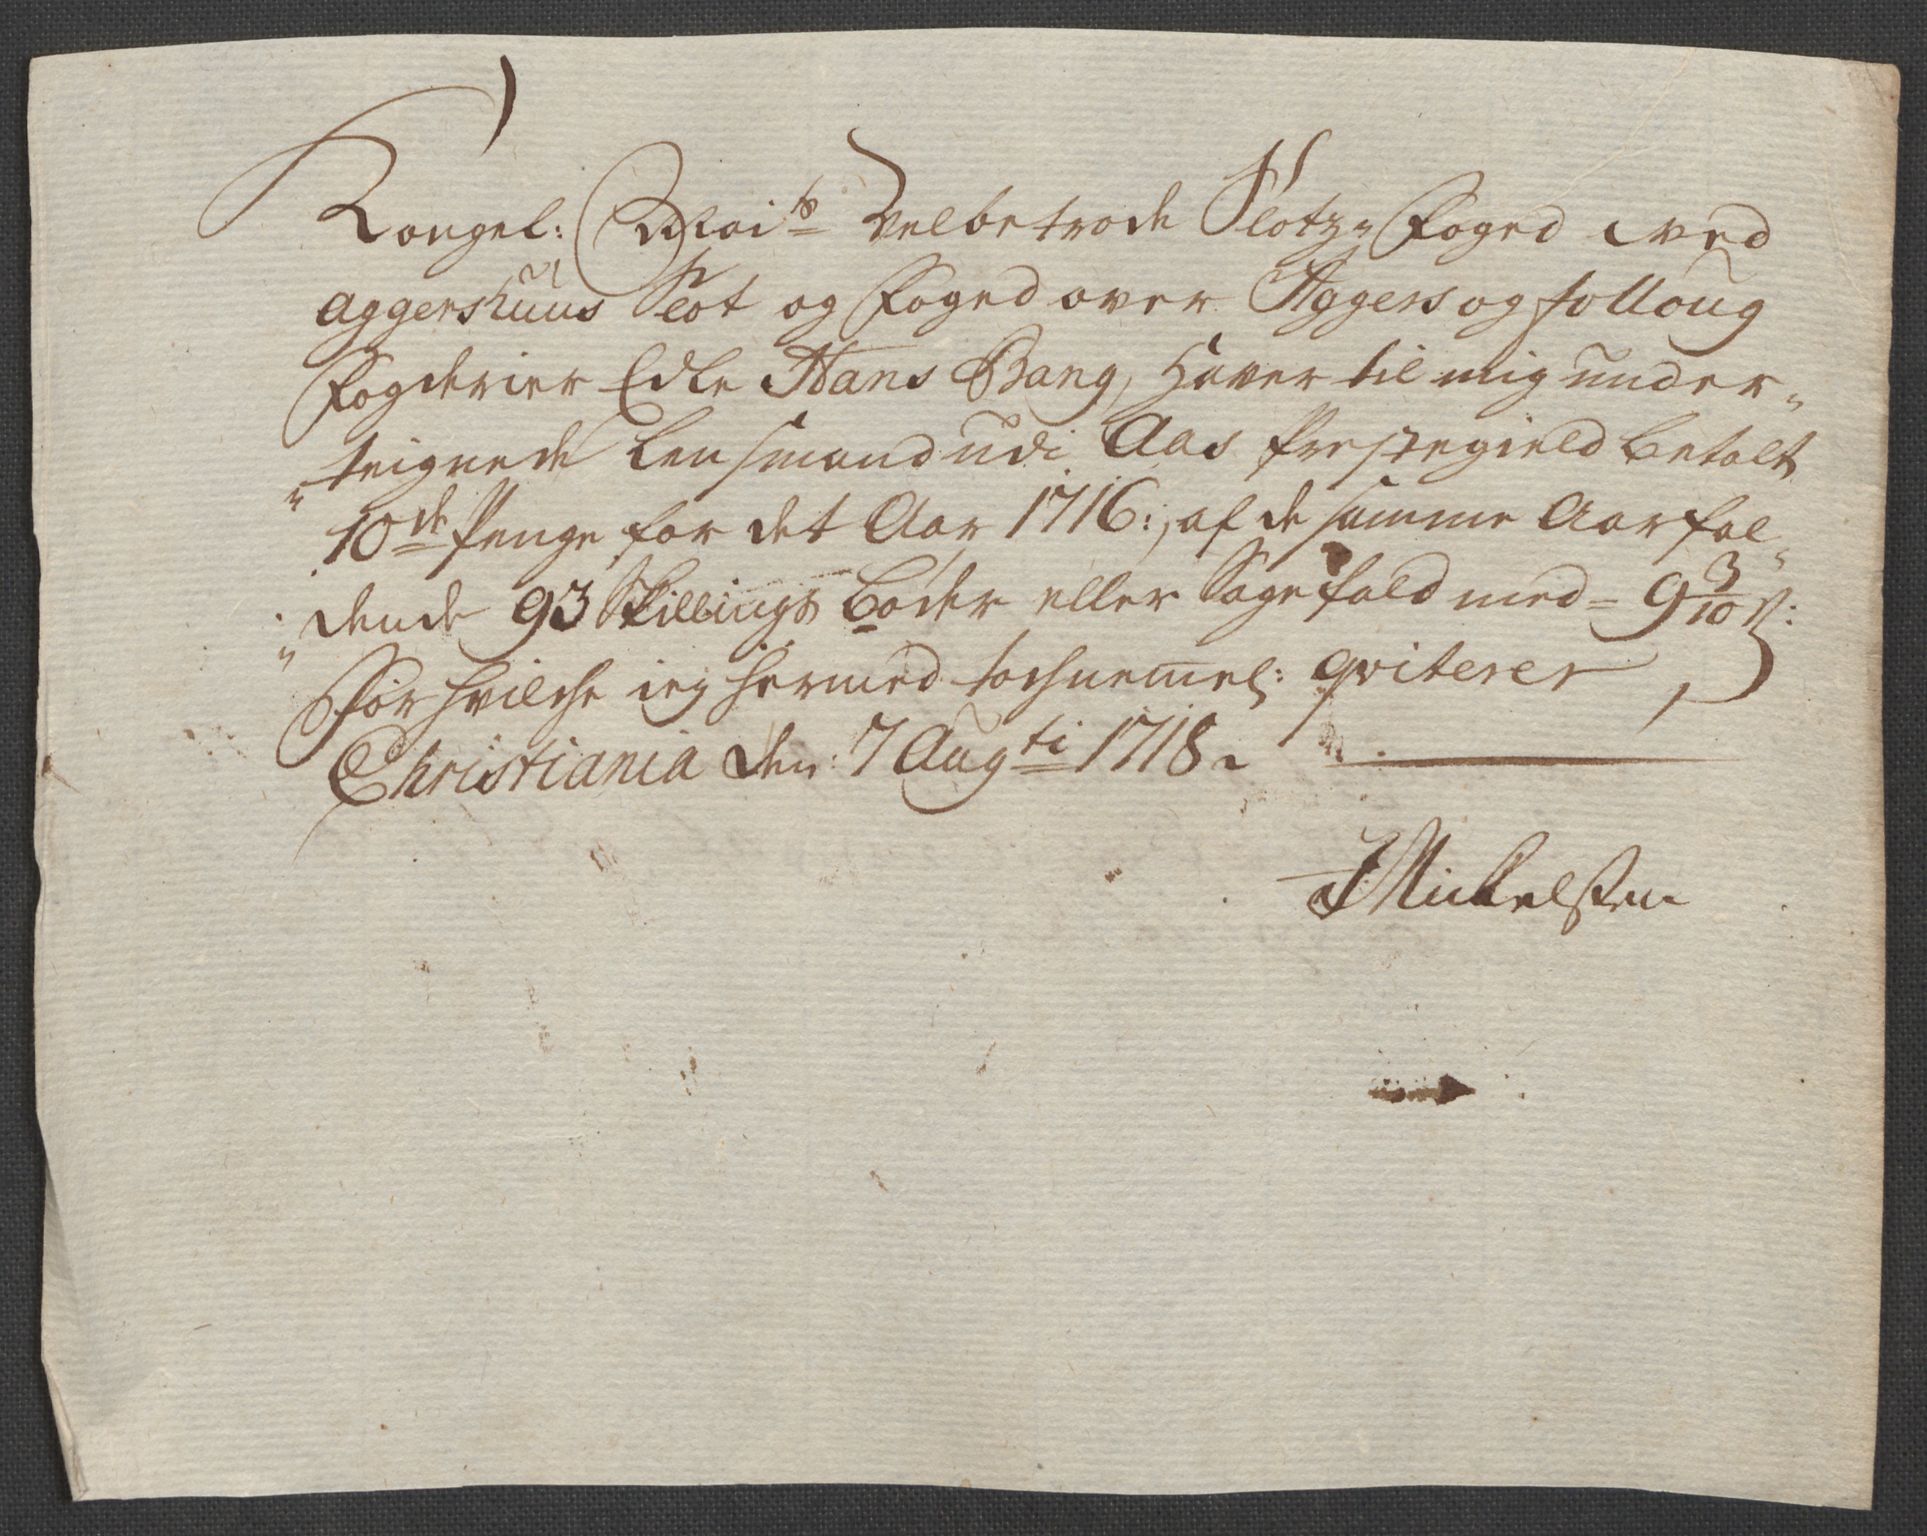 Kongel: Mai.ts Velbetrode Slotz-Foged ved
Aggershuus Slot og Foged over Aggers og folloug
Fogderier Edle Hans Bang, Haver til mig under-
teignede Lensmand udi Aas Prestegield betalt
10de Penge for det Aar 1716:, af de samme Aar fal-
dende 93 Skillings Bøder eller Sagefald med = 9 3/10 ß:
For hvilche ieg hermed tachnemel: qviterer
Christiania den: 7 Augti 1718.
Mickelsen